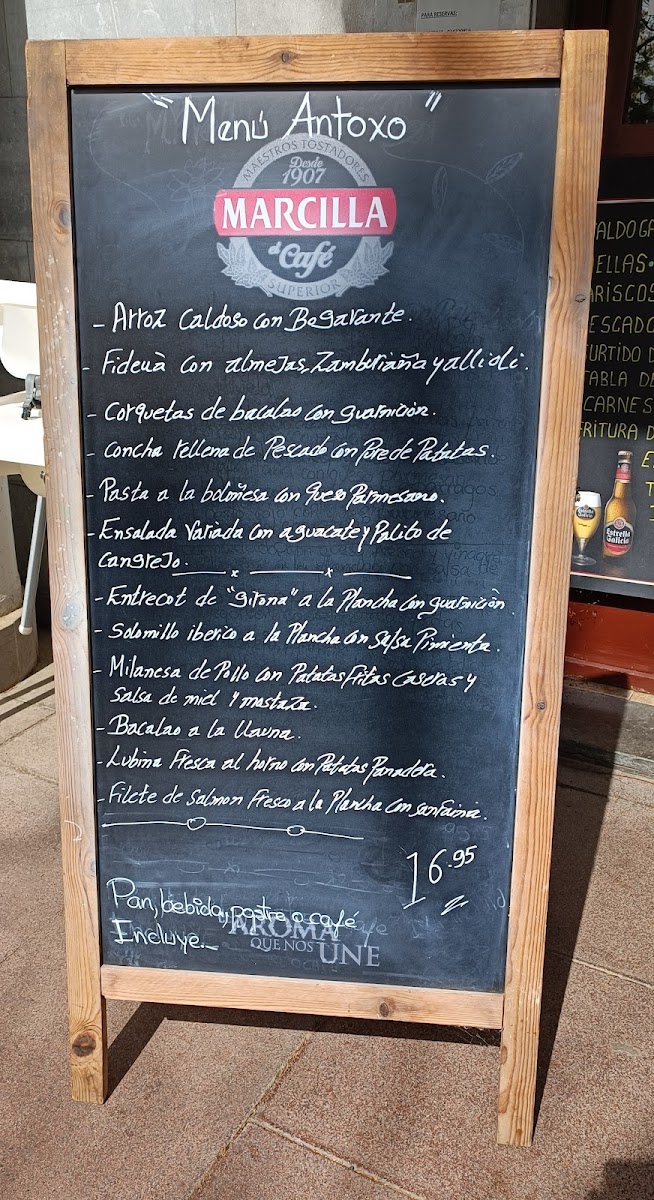 PARA RESERVAS:
"Menú Antoxo"
MAESTROS TOSTADORES
Desde
1907
MARCILLA
el Café
SUPERIOR
- Arroz Caldoso con Bogavante.
- Fideuà con almejas, Zamburiaña y allioli.
- Corquetas de bacalao con guarnición.
- Concha rellena de Pescado con Pure de Patatas.
- Pasta a la boloñesa con Queso Parmesano.
- Ensalada Variada con aguacate y Palito de
cangrejo.
- Entrecot de "girona" a la Plancha con guarnición.
- Solomillo iberico a la Plancha con Salsa Pimienta.
- Milanesa de Pollo con Patatas Fritas Caseras y
Salsa de miel y mostaza.
- Bacalao a la llauna.
- Lubina Fresca al horno con Patatas Panadera.
- Filete de Salmon Fresco a la Plancha con sanfaina.
16.95
Pan, bebida, postre o café
Incluye.-
AROMA
QUE NOS
UNE
ALDO GA
ELLAS
ARISCOS
ESCADO
URTIDO D
TABLA DE
CARNES
FRITURA D
Estrella
Galicia